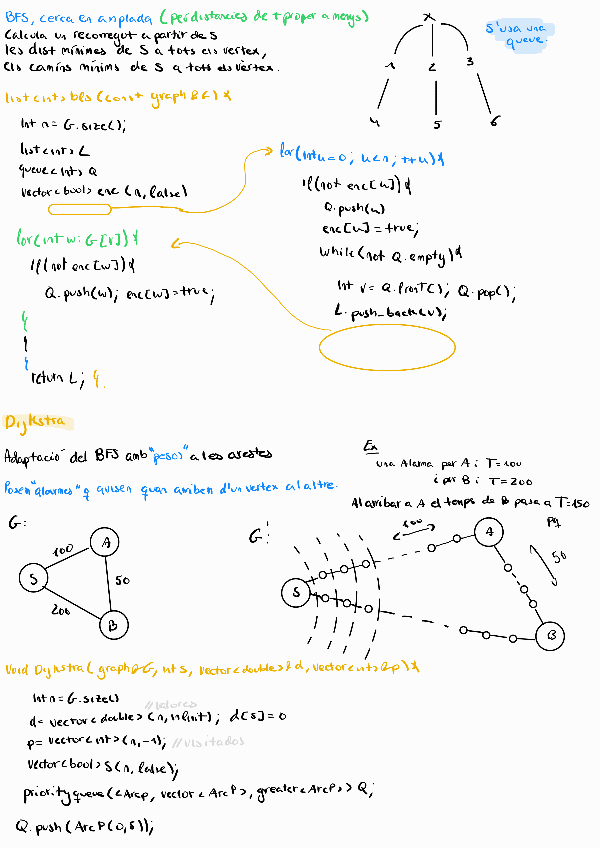 BFS, cerca en amplada (per distancies de + proper a menys)
Calcula un recorregut a partir de S
les dist mínimes de S a tots els vertex,
els camins mínims de S a tots els vèrtex.
S'usa una
queue.
X
1 2 3
4 5 6
list<int> bfs (const graph& G) {
int n = G.size();
list<int> L
queue<int> Q
vector<bool> enc (n, false)
for(int u=0; u<n; ++u) {
if(not enc[u]) {
Q.push(u)
enc[u]=true;
while(not Q.empty) {
int v = Q.front(); Q.pop();
L.push_back(v);
for(int w: G[v]) {
if(not enc[w]) {
Q.push(w); enc[w]=true;
}
}
}
return L; }.
Dijkstra
Adaptació del BFS amb "pesos" a les arestes
Posen "alarmes" q avisen quan arriben d'un vertex al altre.
Ex
una Alarma per A i T=100
i per B i T=200
Al arribar a A el temps de B passa a T=150
G:
S
A
B
100
50
200
G':
S
A
B
100
50
void Dijkstra( graph& G, int s, vector<double>& d, vector<int>& p) {
int n = G.size()
//valores
d= vector<double> (n, infinit); d[s]=0
p= vector<int> (n,-1); //visitados
vector<bool> S(n, false);
priority queue(<ArcP, vector<ArcP>, greater<ArcP>> Q;
Q.push(ArcP(0,s));